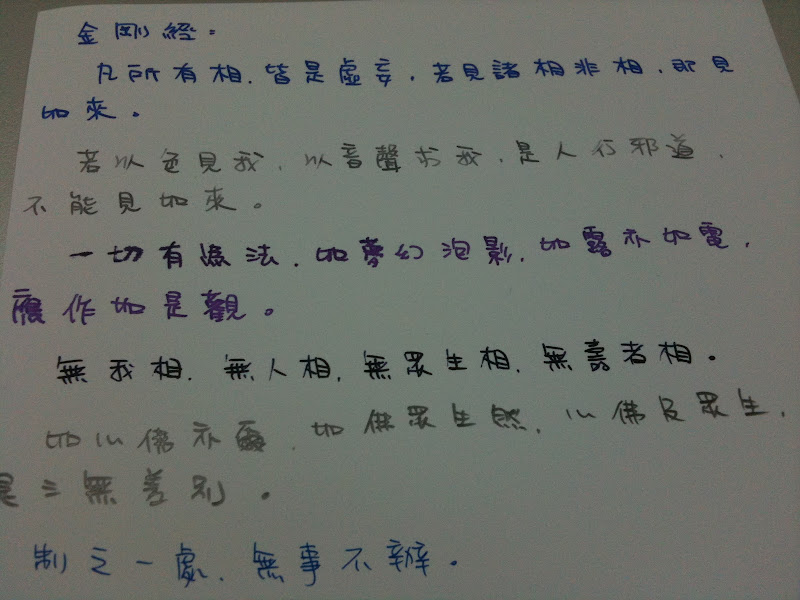 金剛經。
凡所有相.皆是虛妄.若見諸相非相.即見
如來。
若以色見我.以音聲求我.是人行邪道.
不能見如來。
一切有為法.如夢幻泡影.如露亦如電.
應作如是觀。
無我相.無人相.無眾生相.無壽者相。
如心佛亦爾.如佛眾生然.心佛及眾生.
是三無差別。
制之一處.無事不辦。